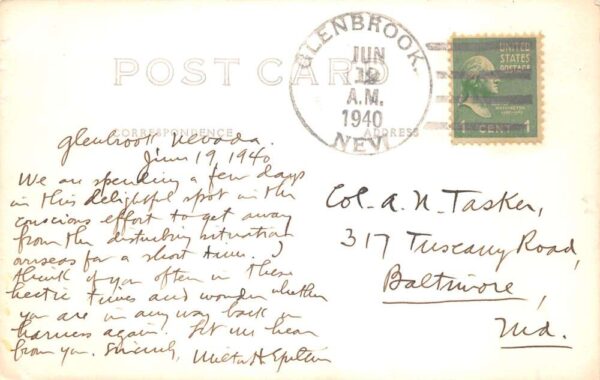 POST CARD
CORRESPONDENCE
ADDRESS
GLENBROOK.
JUN
19
A.M.
1940
NEV.
UNITED
STATES
POSTAGE
WASHINGTON
1 CENT 1
Glenbrook Nevada.
June 19, 1940
We are spending a few days
in this delightful spot in the
conscious effort to get away
from the disturbing situation
overseas for a short time. I
think of you often in these
hectic times and wonder whether
you are in any way back in
harness again. Let us hear
from you. Sincerely, Milton H. Epstein
Col. A. N. Tasker,
317 Tuscany Road,
Baltimore,
Md.